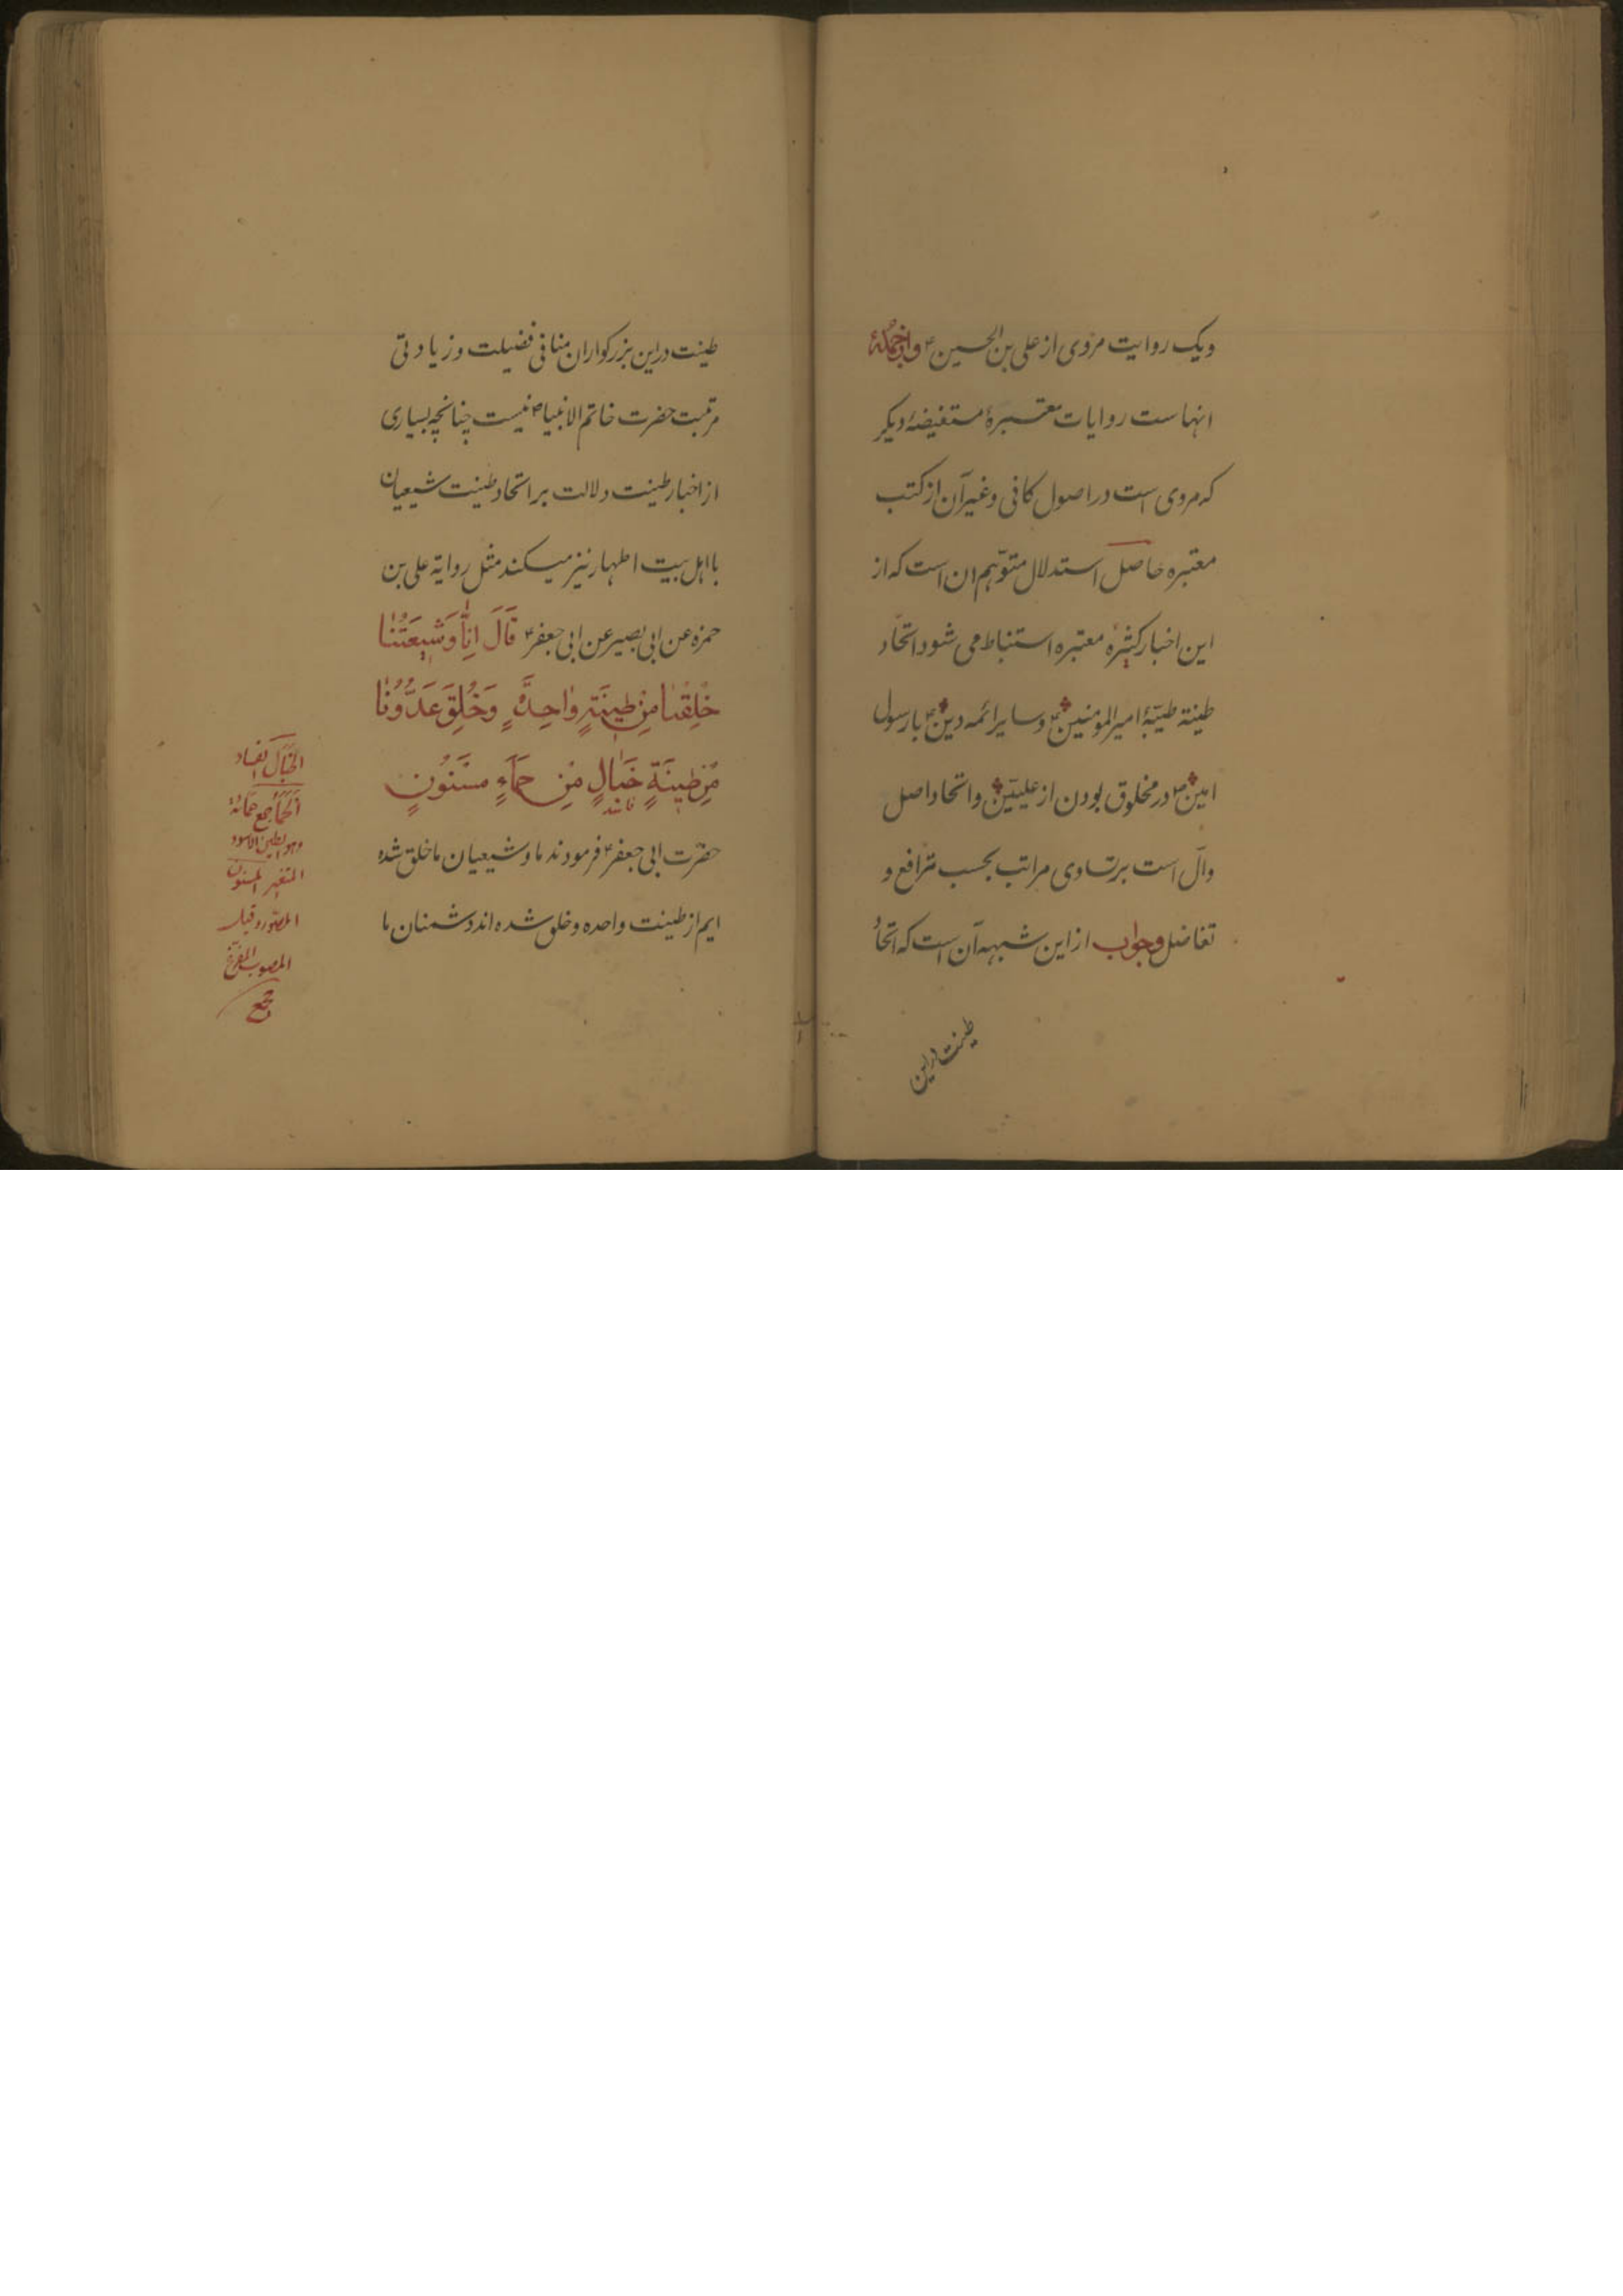 ویک روایت مروی از علی بن الحسین ع وازجمله
انهاست روایات معتبرهٔ مستفیضهٔ دیکر
که مروی است در اصول کافی وغیرآن از کتب
معتبره حاصل استدلال متوّهم ان است که از
این اخبار کثیرهٔ معتبره استنباط می شود اتحاد
طینة طیّبهٔ امیرالمومنین ع وسایر ائمه دین ع بارسول
امین ص در مخلوق بودن از علیّین واتحاد اصل
وآل است برتساوی مراتب بحسب ترافع و
تفاضل وجواب از این شبهه آن است که اتحاد
طینت دراین
طینت دراین بزرکواران منافی فضیلت وزیادتی
مرتبت حضرت خاتم الانبیا ص نیست چنانچه بسیاری
از اخبار طینت دلالت براتحاد طینت شیعیان
با اهل بیت اطهار نیز میکند مثل روایة علی بن
حمزه عن ابی بصیر عن ابی جعفر ع قَالَ اِنّا وَشیعَتُنا
خُلِقْنا مِنْ طینَةٍ واحِدَةٍ وَخُلِقَ عَدُوُّنا
مِنْ طینَةِ خَبالٍ مِنْ حَمَاءٍ مَسْنُونٍ
حضرت ابی جعفر ع فرمودند ما وشیعیان ما خلق شده
ایم از طینت واحده وخلق شده اند دشمنان ما
الخَبَال الفساد
الحَمَأ جمع حَمَأة
وهو الطین الاسود
المتغیر المسنون
المصّور وقیل
المصبوب المفرغ
مجمع